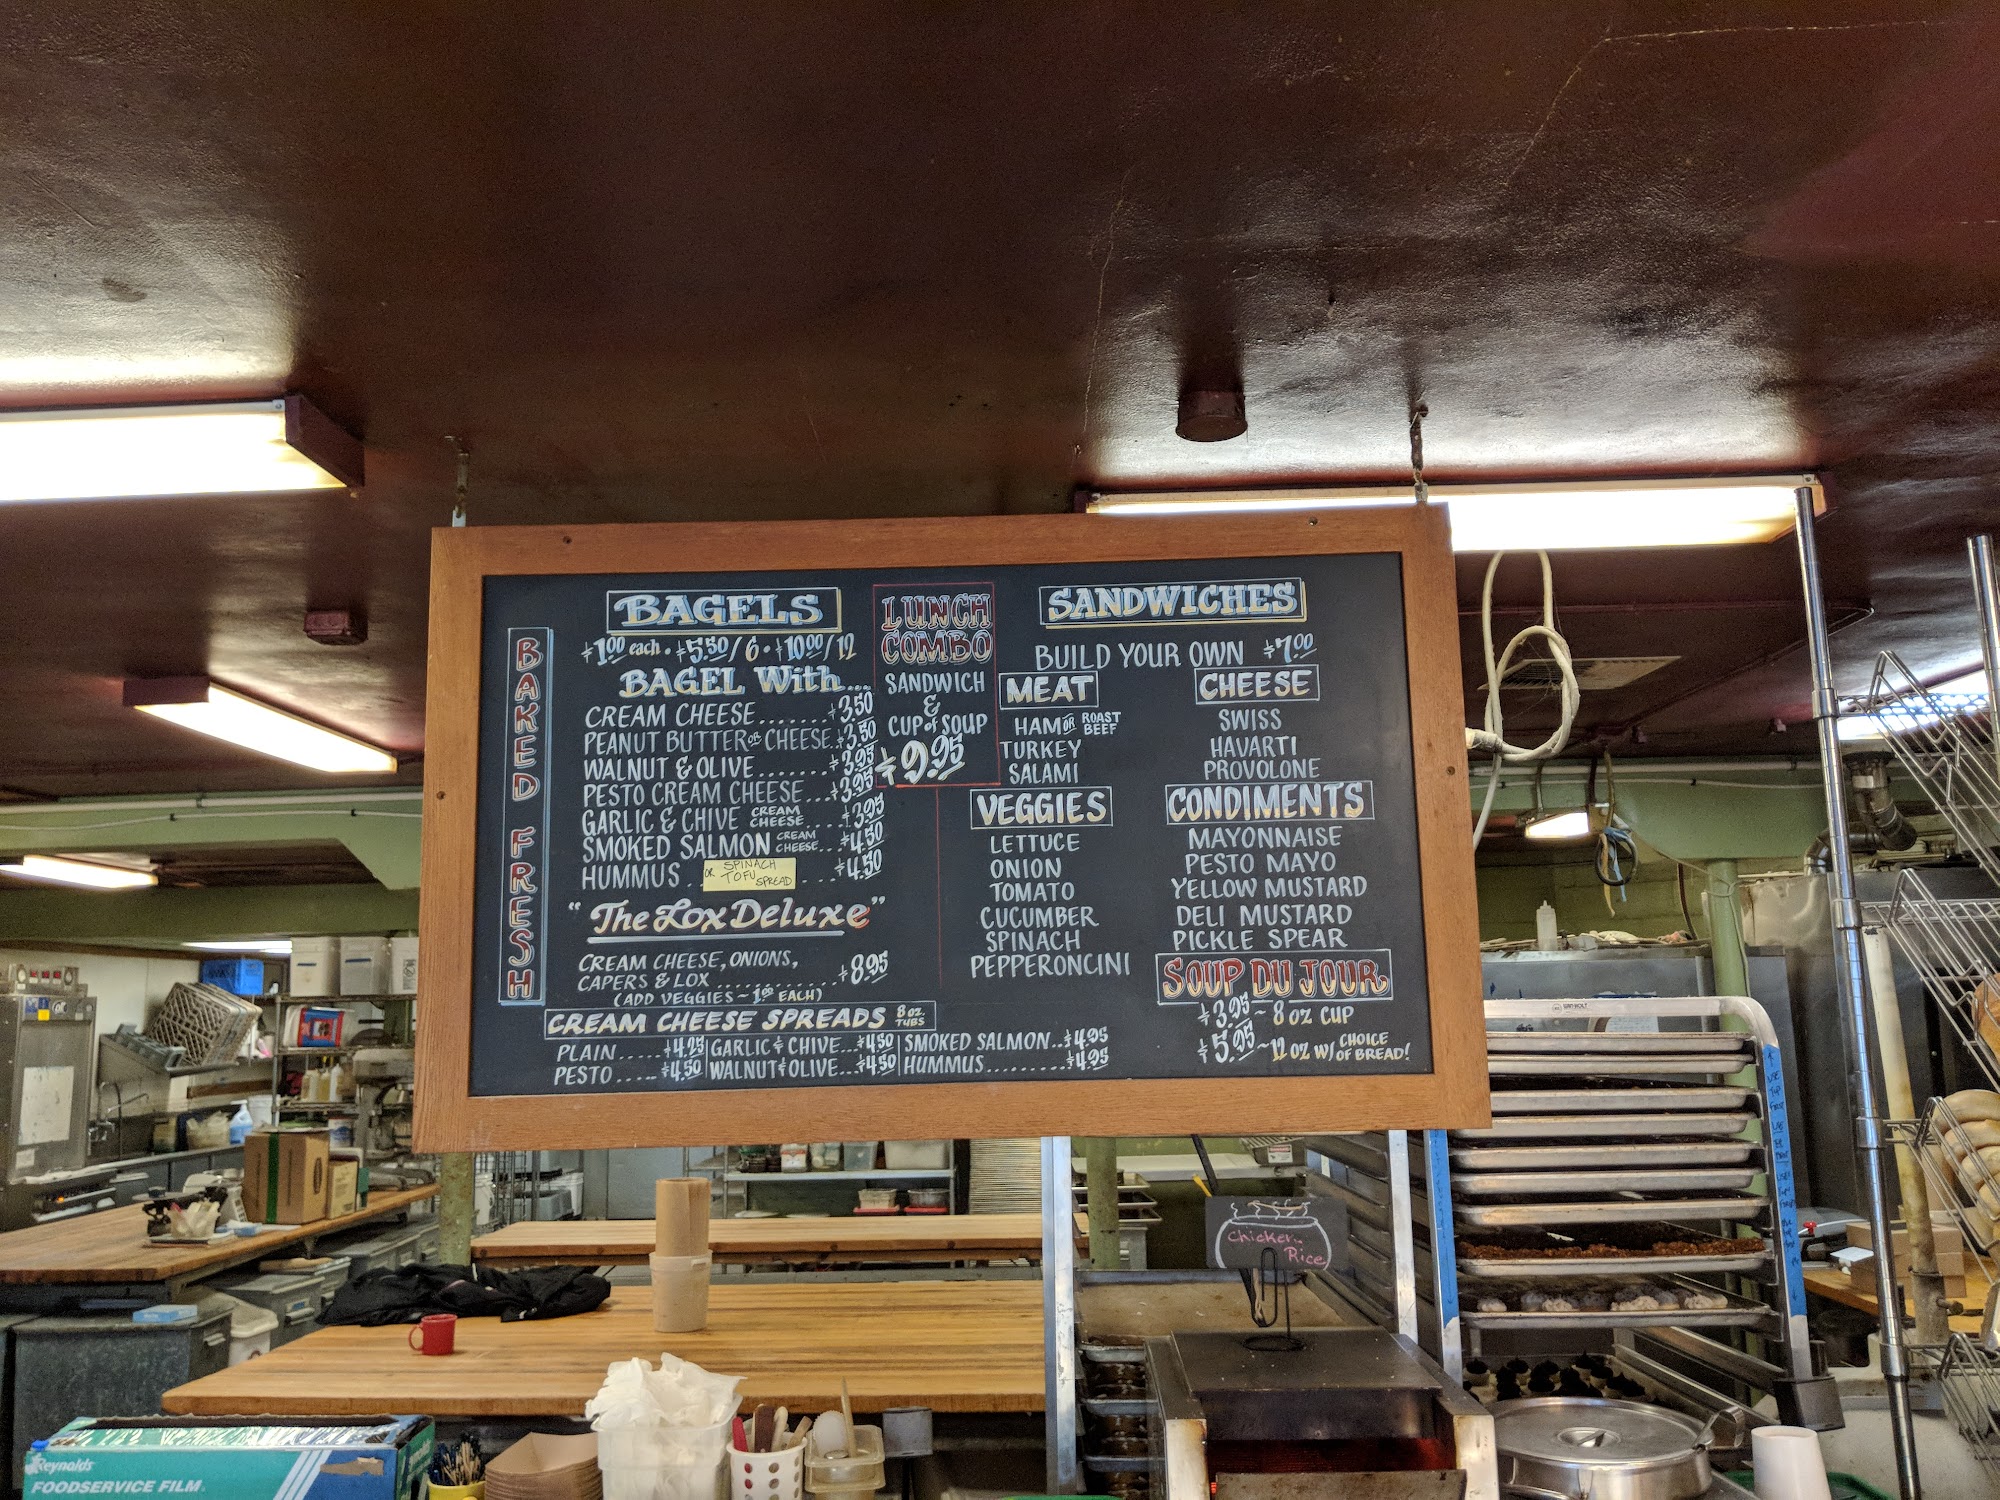 BAKED FRESH
BAGELS
$1.00 each • $5.50/6 • $10.00/12
BAGEL With...
CREAM CHEESE.......$3.50
PEANUT BUTTER OR CHEESE.$3.50
WALNUT & OLIVE.......$3.95
PESTO CREAM CHEESE...$3.95
GARLIC & CHIVE CREAM CHEESE....$3.95
SMOKED SALMON CREAM CHEESE...$4.50
HUMMUS.. OR SPINACH TOFU SPREAD ....$4.50
"The Lox Deluxe"
CREAM CHEESE, ONIONS,
CAPERS & LOX............$8.95
(ADD VEGGIES - 1.00 EACH)
LUNCH
COMBO
SANDWICH
&
CUP of SOUP
$9.95
SANDWICHES
BUILD YOUR OWN $7.00
MEAT
HAM OR ROAST BEEF
TURKEY
SALAMI
CHEESE
SWISS
HAVARTI
PROVOLONE
VEGGIES
LETTUCE
ONION
TOMATO
CUCUMBER
SPINACH
PEPPERONCINI
CONDIMENTS
MAYONNAISE
PESTO MAYO
YELLOW MUSTARD
DELI MUSTARD
PICKLE SPEAR
SOUP DU JOUR
$3.95 ~ 8 OZ CUP
$5.95 ~ 12 OZ W/ CHOICE OF BREAD!
CREAM CHEESE SPREADS 8 OZ. TUBS
PLAIN.....$4.25 GARLIC & CHIVE...$4.50 SMOKED SALMON...$4.95
PESTO.....$4.50 WALNUT & OLIVE...$4.50 HUMMUS..........$4.95
Chicken
Rice
Reynolds
FOODSERVICE FILM